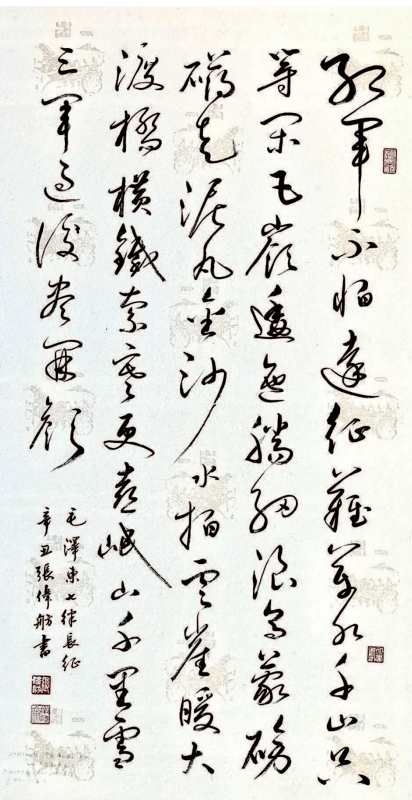 紅軍不怕遠征難萬水千山只
等閑五嶺逶迤騰細浪烏蒙磅
礴走泥丸金沙水拍雲崖暖大
渡橋橫鐵索寒更喜岷山千里雪
三軍過後盡開顏
毛澤東七律長征
辛丑張偉舫書